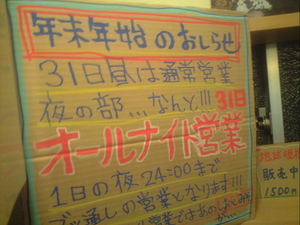 年末年始のおしらせ
31日昼は通常営業
夜の部…なんと!!! 31日
オールナイト営業
1日の夜24:00まで
ブッ通しの営業となります!!!
営業ではあの
販売中
1500円